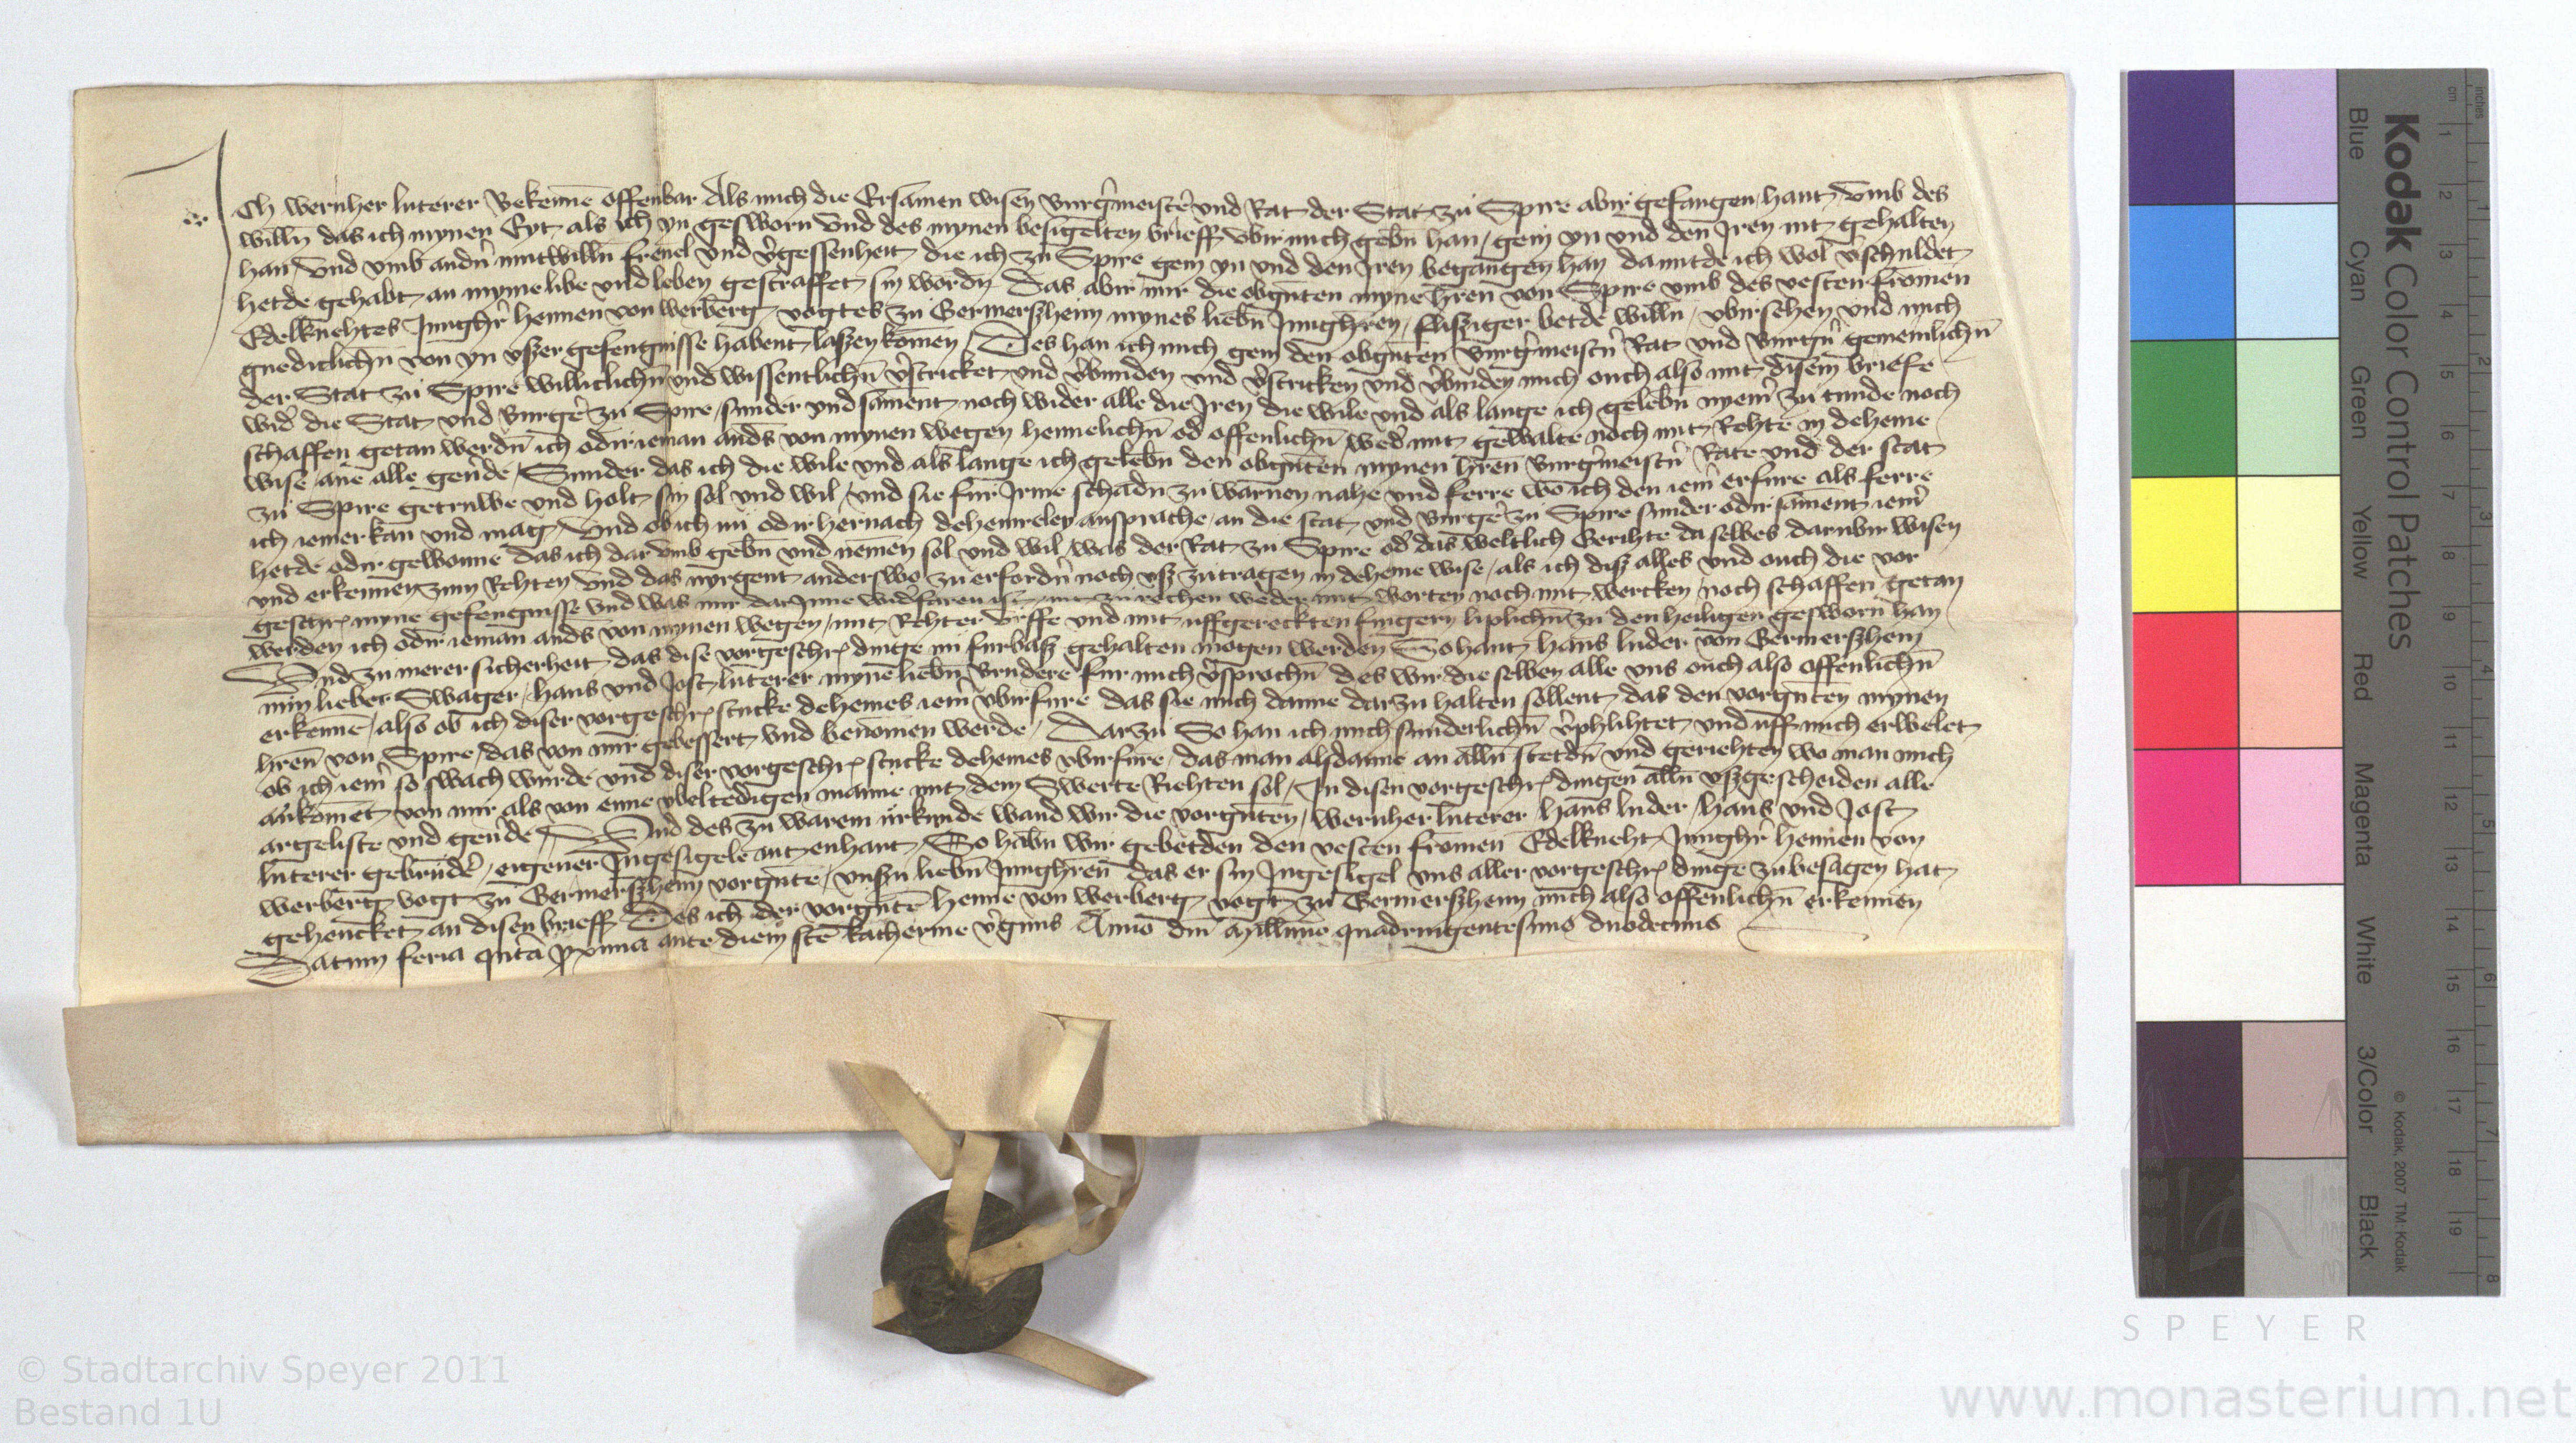 Ich wernher luterer Bekenne offenbar Als mich die Ersamen wisen Burgmeistere und Rat der Stat zu Spire abir gefangen hant Umb des
willn das ich mynen Eyt als ich yn gesworn und des mynen besigelten brieff ubir mich gebn han gein yn und den Iren nit gehalten
han Und umb andn mutwilln frevel und vgessenheit die ich zu Spire gein yn und den Iren begangen han damitde ich wol vschuldet
hetde gehabt an myme libe und leben gestraffet sin wordn Das abir mir die obgnten myne hren von Spire umb des vesten fromen
Edelknehtes Junghr hennen von werberg vogtes zu Germerszheim mynes liebn Junghren flisziger betde willn ubirsehen und mich
gnediclichn von yn uszer gefengnisse habent laszen komen Des han ich mich gein den obgnten Burgmeistn Rat und Burgn gemeinlichn
der Stat zu Spire williclichn und wissentlichn vstricket und vbunden und vstricken und vbinden mich ouch also mit disem briefe
wid die Stat und Burge zu Spire sunder und sament noch wider alle die Iren die wile und als lange ich gelebn nyem zu tunde noch
schaffen getan werdn ich odir ieman ands von mynen wegen heimelichn od offenlichn wed mit gewalte noch mit Rehte in deheine
wise ane alle geude Sunder das ich die wile und als lange ich gelebn den obgnten mynen hren Burgmeistn Rate und der stat
zu Spire getruwe und holt sin sol und wil und sie fur Irme schadn zu warnen nahe und ferre wo ich den iem erfure als ferre
ich iemer kan und mag Und ob ich nu odir hernach deheinreley ansprache an die stat und burge zu Spire sunder odir sament iem
hetde odir gewonne das ich dar umb gebn und nemen sol und wil was der Rat zu Spire od das weltlich Gerihte daselbes darubir wisen
und erkennen zum Rehten Und das nyrgent anderswo zu erfordn noch usz zutragen in deheine wise als ich disz alles und ouch die vor
geschr myne gefengnisse und was mir dar Inne widfaren ist nit zu rechen weder mit worten noch mit wercken noch schaffen getan
werden ich odir ieman ands von mynen wegen mit Rehter urffe und mit uffgereckten fingern liplichn zu den heiligen gesworn han
Und zu merer sicherheit das dise vorgeschr dinge nu furbasz gehalten mogen werden So hant hans luder von Germerszheim
min lieber Swager hans und Jost luterer myne liebn Brudere fur mich vsprochn des wir die selben alle uns ouch also offenlichn
erkenne also ob ich diser vorgeschr stucke deheines iem ubirfure das sie mich danne darzu halten sollent das den vorgnten mynen
hren von Spire das von mir gebessert und benomen werde Darzu So han ich mich sunderlichn vphlihtet und uff mich erwelet
ob ich iem so swach wurde und diser vorgeschr stucke deheines ubirfure das man alsdanne an alln stetdn und geriehten wo man mich
ankomet von mir als von eime ubeltedigen manne mit dem Swerte Riehten sol In disen vorgeschr dingen alln uszgescheiden alle
argeliste und geude Und des zu warem urkunde wand wir die vorgnten wernher luterer hans luder hans und Jost
luterer gebrude eigener Ingesigele nit enhant So habn wir gebetden den vesten fromen Edelkneht Junghr hennen von
werberg vogt zu Germerszheim vorgnte unszn liebn Junghren das er sin Ingesigel uns aller vorgeschr dinge zubesagen hat
gehencket an disen brieff Des ich der vorgnte Henne von werberg vogt zu Germerszheim mich also offenlichn erkennen
Datum feria quita pxima ante diem sce katherine vginis Anno dni Millimo quadringentesimo duodecimo
Kodak Color Control Patches
Blue Cyan Green Yellow Red Magenta White 3/Color Black
© Kodak, 2007 TM: Kodak
SPEYER
© Stadtarchiv Speyer 2011
Bestand 1U
www.monasterium.net